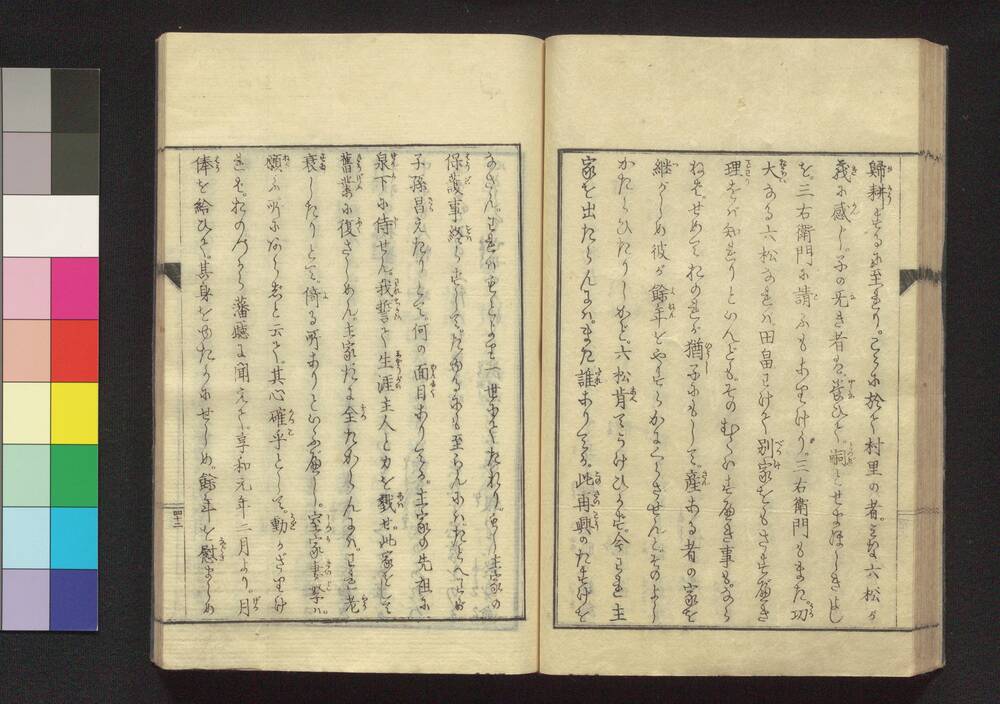 歸耕するに至れり。こゝに於て村里の者。みな六松が
義に感じ。子の兄き者は。當ひて。嗣とせまほしきよし
を。三右衛門に請ふもありけり。三右衛門もまた。功
大なる六松なれば。田畠わけて別家をもさすべき
理をば知れりといへども。そのむくいすべき事も。なら
ねば。せめておのれが猶子にもして。産ある者の家を
継がしめ彼が餘年をやすらかにくらさせんと。そのよし
かたらひたりしかど。六松肯てうけひかず。今われ主
家を出たらんには。また誰ありてか。此再興のたすけを
なさん。われは
保護事終らずして。たゆるにも至らんには。たとへわが
子孫昌えたりとて。何の面目ありてか。主家の先祖に
泉下に侍せん。我誓て生涯主人と力を戮せ。此家をして
舊業に復さしめん。主家だに全たからんには。われ老
衰したりとて。倚る所ありといふべし。室家妻孥は。
願ふ所にあらずと云て。其心確乎として。動かざりけ
れば。おのづから藩聴に聞えて。享和元年二月より。月
俸を給ひて。其身をゆたかにせしめ。餘年を慰ましめ
四十二